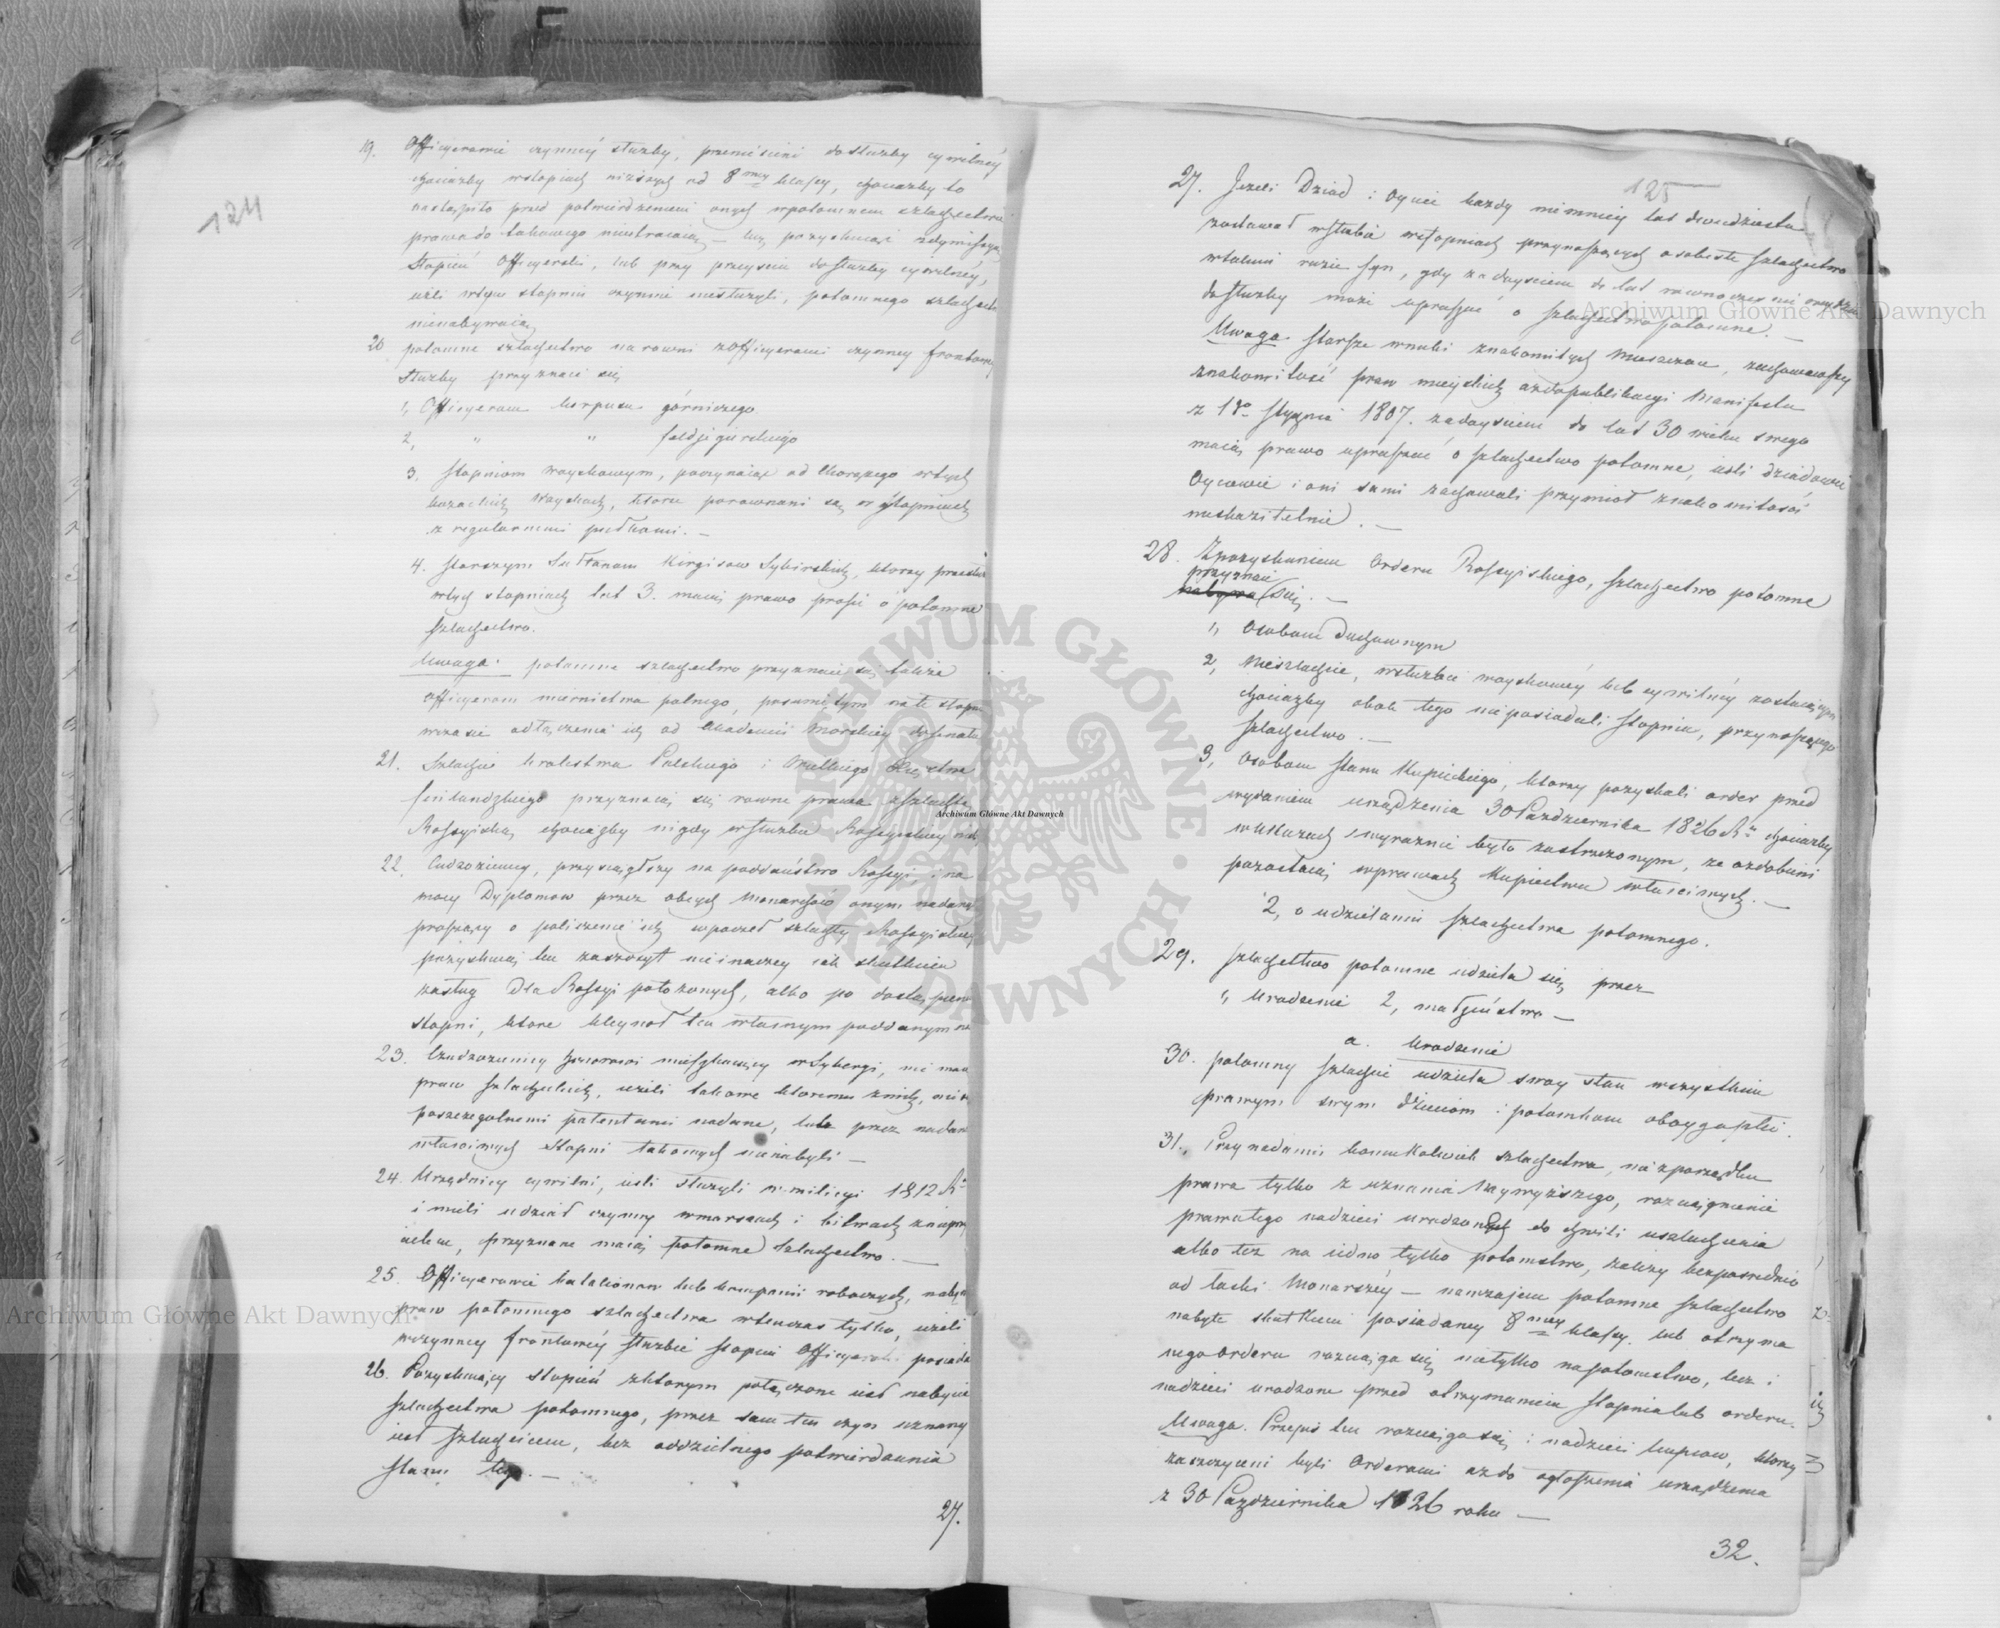 124
19. Officyerowie czynney służby, przeniesieni do służby cywilnéy
chociażby w stopniach niższych od 8mey klassy, chociażby to
nastąpiło przed potwierdzeniem onych w potomnem szlachectwie
prawa do takowego nie utracaią – lecz pozyskuiąc z dymissyą
stopień Officyerski, lub przy przeyściu do służby cywilnéy,
ieżli w tym stopniu czynnie niesłużyli, potomnego szlachectwa
nienabywaią
20 potomne szlachectwo na rowni z officyerami czynney frontowey
służby przyznaie się
1, Officyerom korpusu górniczego
2, " " feldjegierskiego
3. Stopniom woyskowym, poczynaiąc od Chorążego w tych
kozackich woyskach, które porownani są w stopniach
z regularnemi pułkami. –
4. Starszym Sułtanom Kirgisow Syberskich, ktorzy przesłuż
w tych stopniach lat 3. maią prawo prosić o potomne
szlachectwo.
Uwaga. potomne szlachectwo przyznaie się także
officyerom miernictwa polnego, posuniętym na te stopnie
w czasie odłączenia ich od Akademii Morskiey do Senatu
21. Szlachcie Krolestwa Polskiego i Wielkiego Księstwa
finlandzkiego przyznaią się rowne prawa z szlachtą
Rossyiską, chociażby nigdy w służbie Rossyiskiey nie
22. Cudzoziemcy, przysiągłszy na poddaństwo Rossyi, i na
mocy Dyplomow przez obcych Monarchów onym nadanych
proszący o policzenie ich w poczet szlachty Rossyiskiey
pozyskuią ten zaszczyt nieinaczey iak skutkiem
zasług dla Rossyi położonych, albo po dostąpieniu
stopni, ktore kleynot ten własnym poddanym na
23. Cudzoziemcy honorowi mieszkaiący w Syberyi, nie maią
praw szlacheckich, ieżeli takowe ktoremu z nich, nie są
poszczegolnemi patentami nadane, lub przez nadan
właściwych stopni takowych nienabyli –
24. Urzędnicy cywilni, ieśli służyli w milicyi 1812 R.
i mieli udział czynny w marszach i bitwach z nieprzy
iacielem, przyznane maią potomne szlachectwo. –
25. Officyerowie batalionow lub kompanii roboczych, nabyw
praw potomnego szlachectwa wtenczas tylko, ieżeli
w czynney frontowéy służbie stopień Officyerski posiada
26. Pozyskuiący stopień z ktorym połączone iest nabycie
szlachectwa potomnego, przez sam ten czyn uznany
iest szlachcicem, bez oddzielnego potwierdzenia
stanu tego. –
27.
125
27. Jeżeli Dziad i Oyciec każdy niemniey lat dwudziestu
zostawał w służbie w stopniach przynoszących osobiste szlachectwo
w takim razie syn, gdy za doyściem do lat
do służby może upraszać o szlachectwo potomne. –
Uwaga. Starsze wnuki znakomitych Mieszczan, zachowawszy
znakomitość praw mieyskich aż do publikacyi Manifestu
z 1go Stycznia 1807. za doyściem do lat 30 wieku swego
maią prawo upraszać o szlachectwo potomne, ieśli dziadowie
Oycowie i oni sami zachowali przymiot znakomitości
nieskazitelnie. –
28. Z pozyskaniem Orderu Rossyiskiego, szlachectwo potomne
przyznaie
nabywa się. –
1, Osobom Duchownym
2, Nieszlachcie, w służbie woyskowéy lub cywilnéy zostaiącym
chociażby obok tego nieposiadali stopnia, przynoszącego
szlachectwo. –
3, Osobom stanu Kupieckiego, ktorzy pozyskali order przed
wydaniem urządzenia 30 Października 1826 Ru chociażby
w Ukazach wyraźnie było zastrzeżonym, że ozdobieni
pozostaią w prawach Kupiectwu właściwych. –
2, o udzielaniu szlachectwa potomnego.
29. Szlachectwo potomne udziela się przez
1, Urodzenie 2, małżeństwo –
a. Urodzenie
30. potomny szlachcic udziela swoy stan wszystkim
prawym swym dzieciom i potomkom oboygapłci.
31. Przy nadaniu komukolwiek szlachectwa, nie z porządku
prawa tylko z uznania Naywyższego, rozciągnienie
prawa tego na dzieci urodzonych do chwili uszlachcenia
albo też na iedno, tylko potomstwo, zależy bezpośrednio
od łaski Monarszéy – nawzajem potomne szlachectwo
nabyte skutkiem posiadaney 8mey klassy. lub otrzyma
nego orderu rozciąga się nietylko na potomstwo, lecz i
na dzieci urodzone przed otrzymaniem stopnia lub orderu.
Uwaga. Przepis ten rozciąga się i na dzieci kupcow, ktorzy
zaszczyceni byli Orderami aż do ogłoszenia urządzenia
z 30 Października 1826 roku –
32.
Archiwum Główne Akt Dawnych
Archiwum Główne Akt Dawnych
Archiwum Główne Akt Dawnych
ARCHIWUM GŁÓWNE AKT DAWNYCH